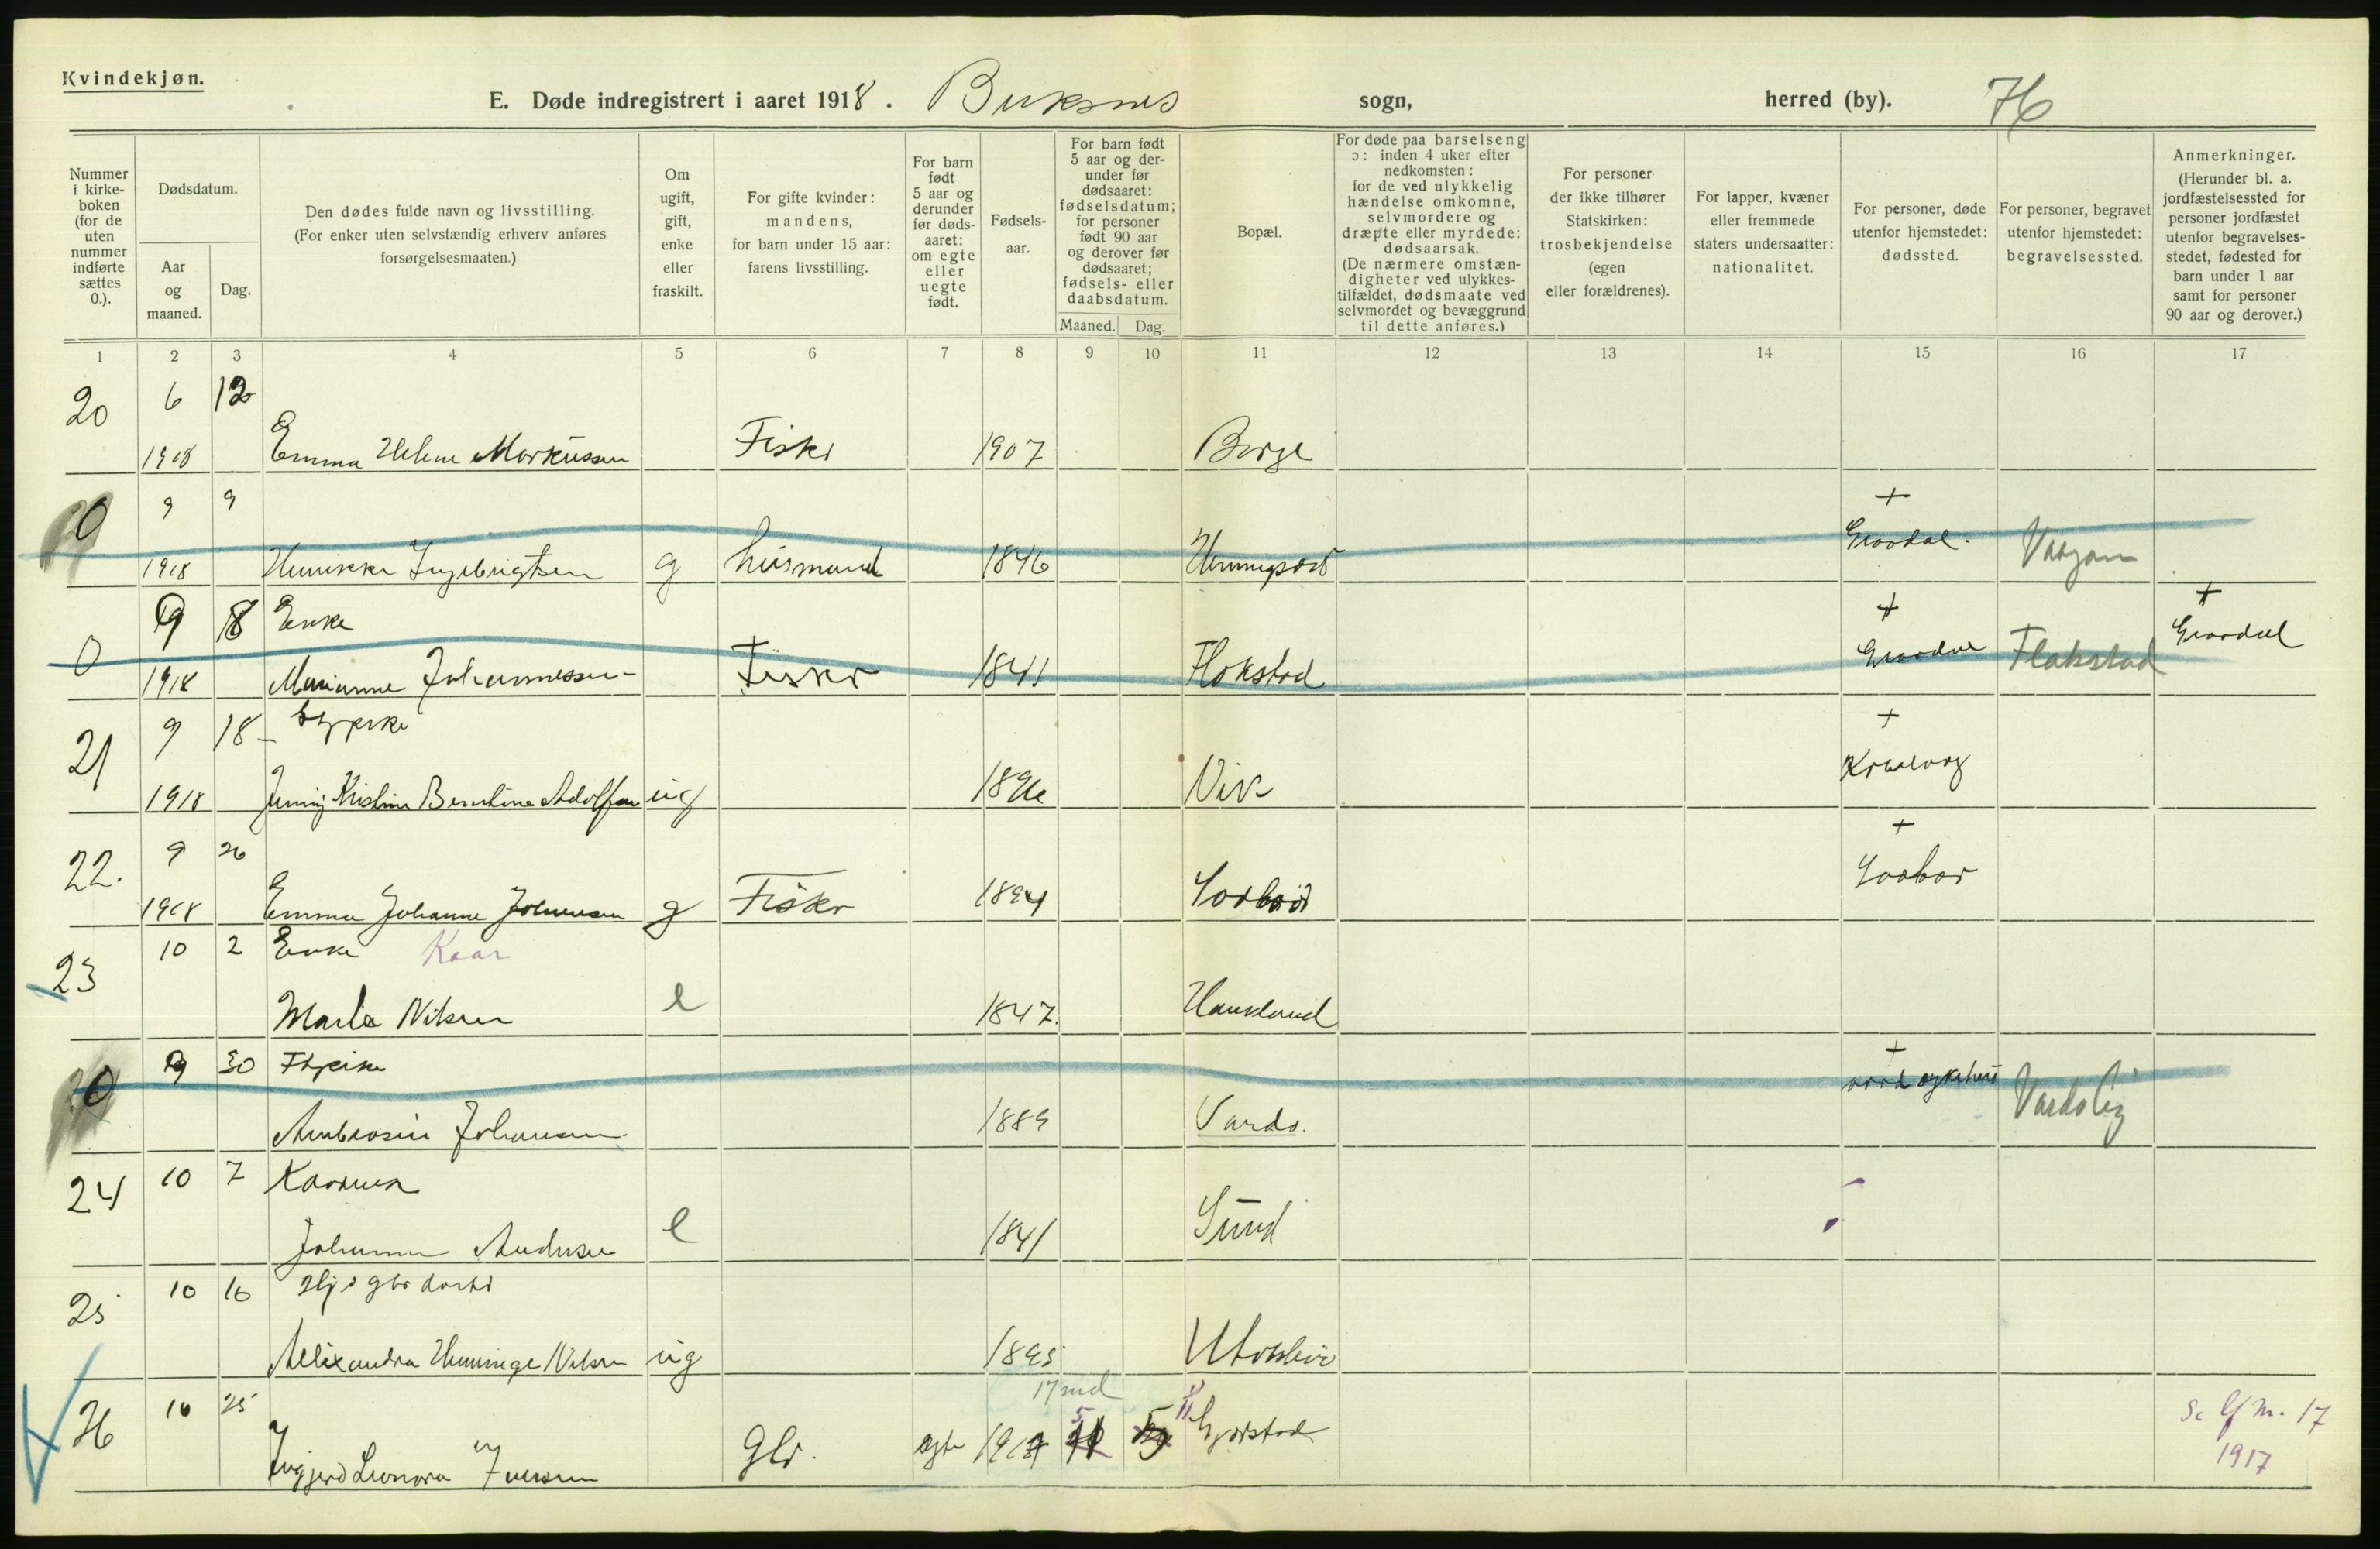 Kvindekjøn.
E. Døde indregistrert i aaret 1918. Buksnes sogn, herred (by). 76
Nummer i kirkeboken (for de uten nummer indførte sættes 0.).
Dødsdatum.
Aar og maaned.
Dag.
Den dødes fulde navn og livsstilling. (For enker uten selvstændig erhverv anføres forsørgelsesmaaten.)
Om ugift, gift, enke eller fraskilt.
For gifte kvinder: mandens, for barn under 15 aar: farens livsstilling.
For barn født 5 aar og derunder før dødsaaret: om egte eller uegte født.
Fødselsaar.
For barn født 5 aar og derunder før dødsaaret: fødselsdatum; for personer født 90 aar og derover før dødsaaret; fødsels- eller daabsdatum.
Maaned. Dag.
Bopæl.
For døde paa barselseng ɔ: inden 4 uker efter nedkomsten: for de ved ulykkelig hændelse omkomne, selvmordere og dræpte eller myrdede: dødsaarsak. (De nærmere omstændigheter ved ulykkestilfældet, dødsmaate ved selvmordet og bevæggrund til dette anføres.)
For personer der ikke tilhører Statskirken: trosbekjendelse (egen eller forældrenes).
For lapper, kvæner eller fremmede staters undersaatter: nationalitet.
For personer, døde utenfor hjemstedet: dødssted.
For personer, begravet utenfor hjemstedet: begravelsessted.
Anmerkninger. (Herunder bl. a. jordfæstelsessted for personer jordfæstet utenfor begravelsesstedet, fødested for barn under 1 aar samt for personer 90 aar og derover.)
1 2 3 4 5 6 7 8 9 10 11 12 13 14 15 16 17
20 6 12
1918 Emma Helene Markussen Fisker 1907 Borge
0 9 9 +
1918 Henrikke Ingebrigtsen g husmand 1846 Gravdal. Vaagan
0 9 18 Enke + +
1918 Marianne Johannessen Fisker 1841 Flakstad Gravdal Flakstad Gravdal
21 9 18 +
1918 Jenny Kristine Berntine Adolfsen ug Vik
22. 9 26 +
1918 Emma Johanne Johansen g Fisker 1894
23 10 2 Enke Kaar
Nilsen e 1847. Haukland
0 9 30 +
Johansen 1889 Vardø. sykehus
24 10 7 Kaarenke
Johanna Andersen e 1841 Sund
25 10 16
Alexandra Henninge Nilsen ug 1895
17 md
26 10 25
Ingjerd Leonora Iversen Gbr. egte 5 5
17
1917